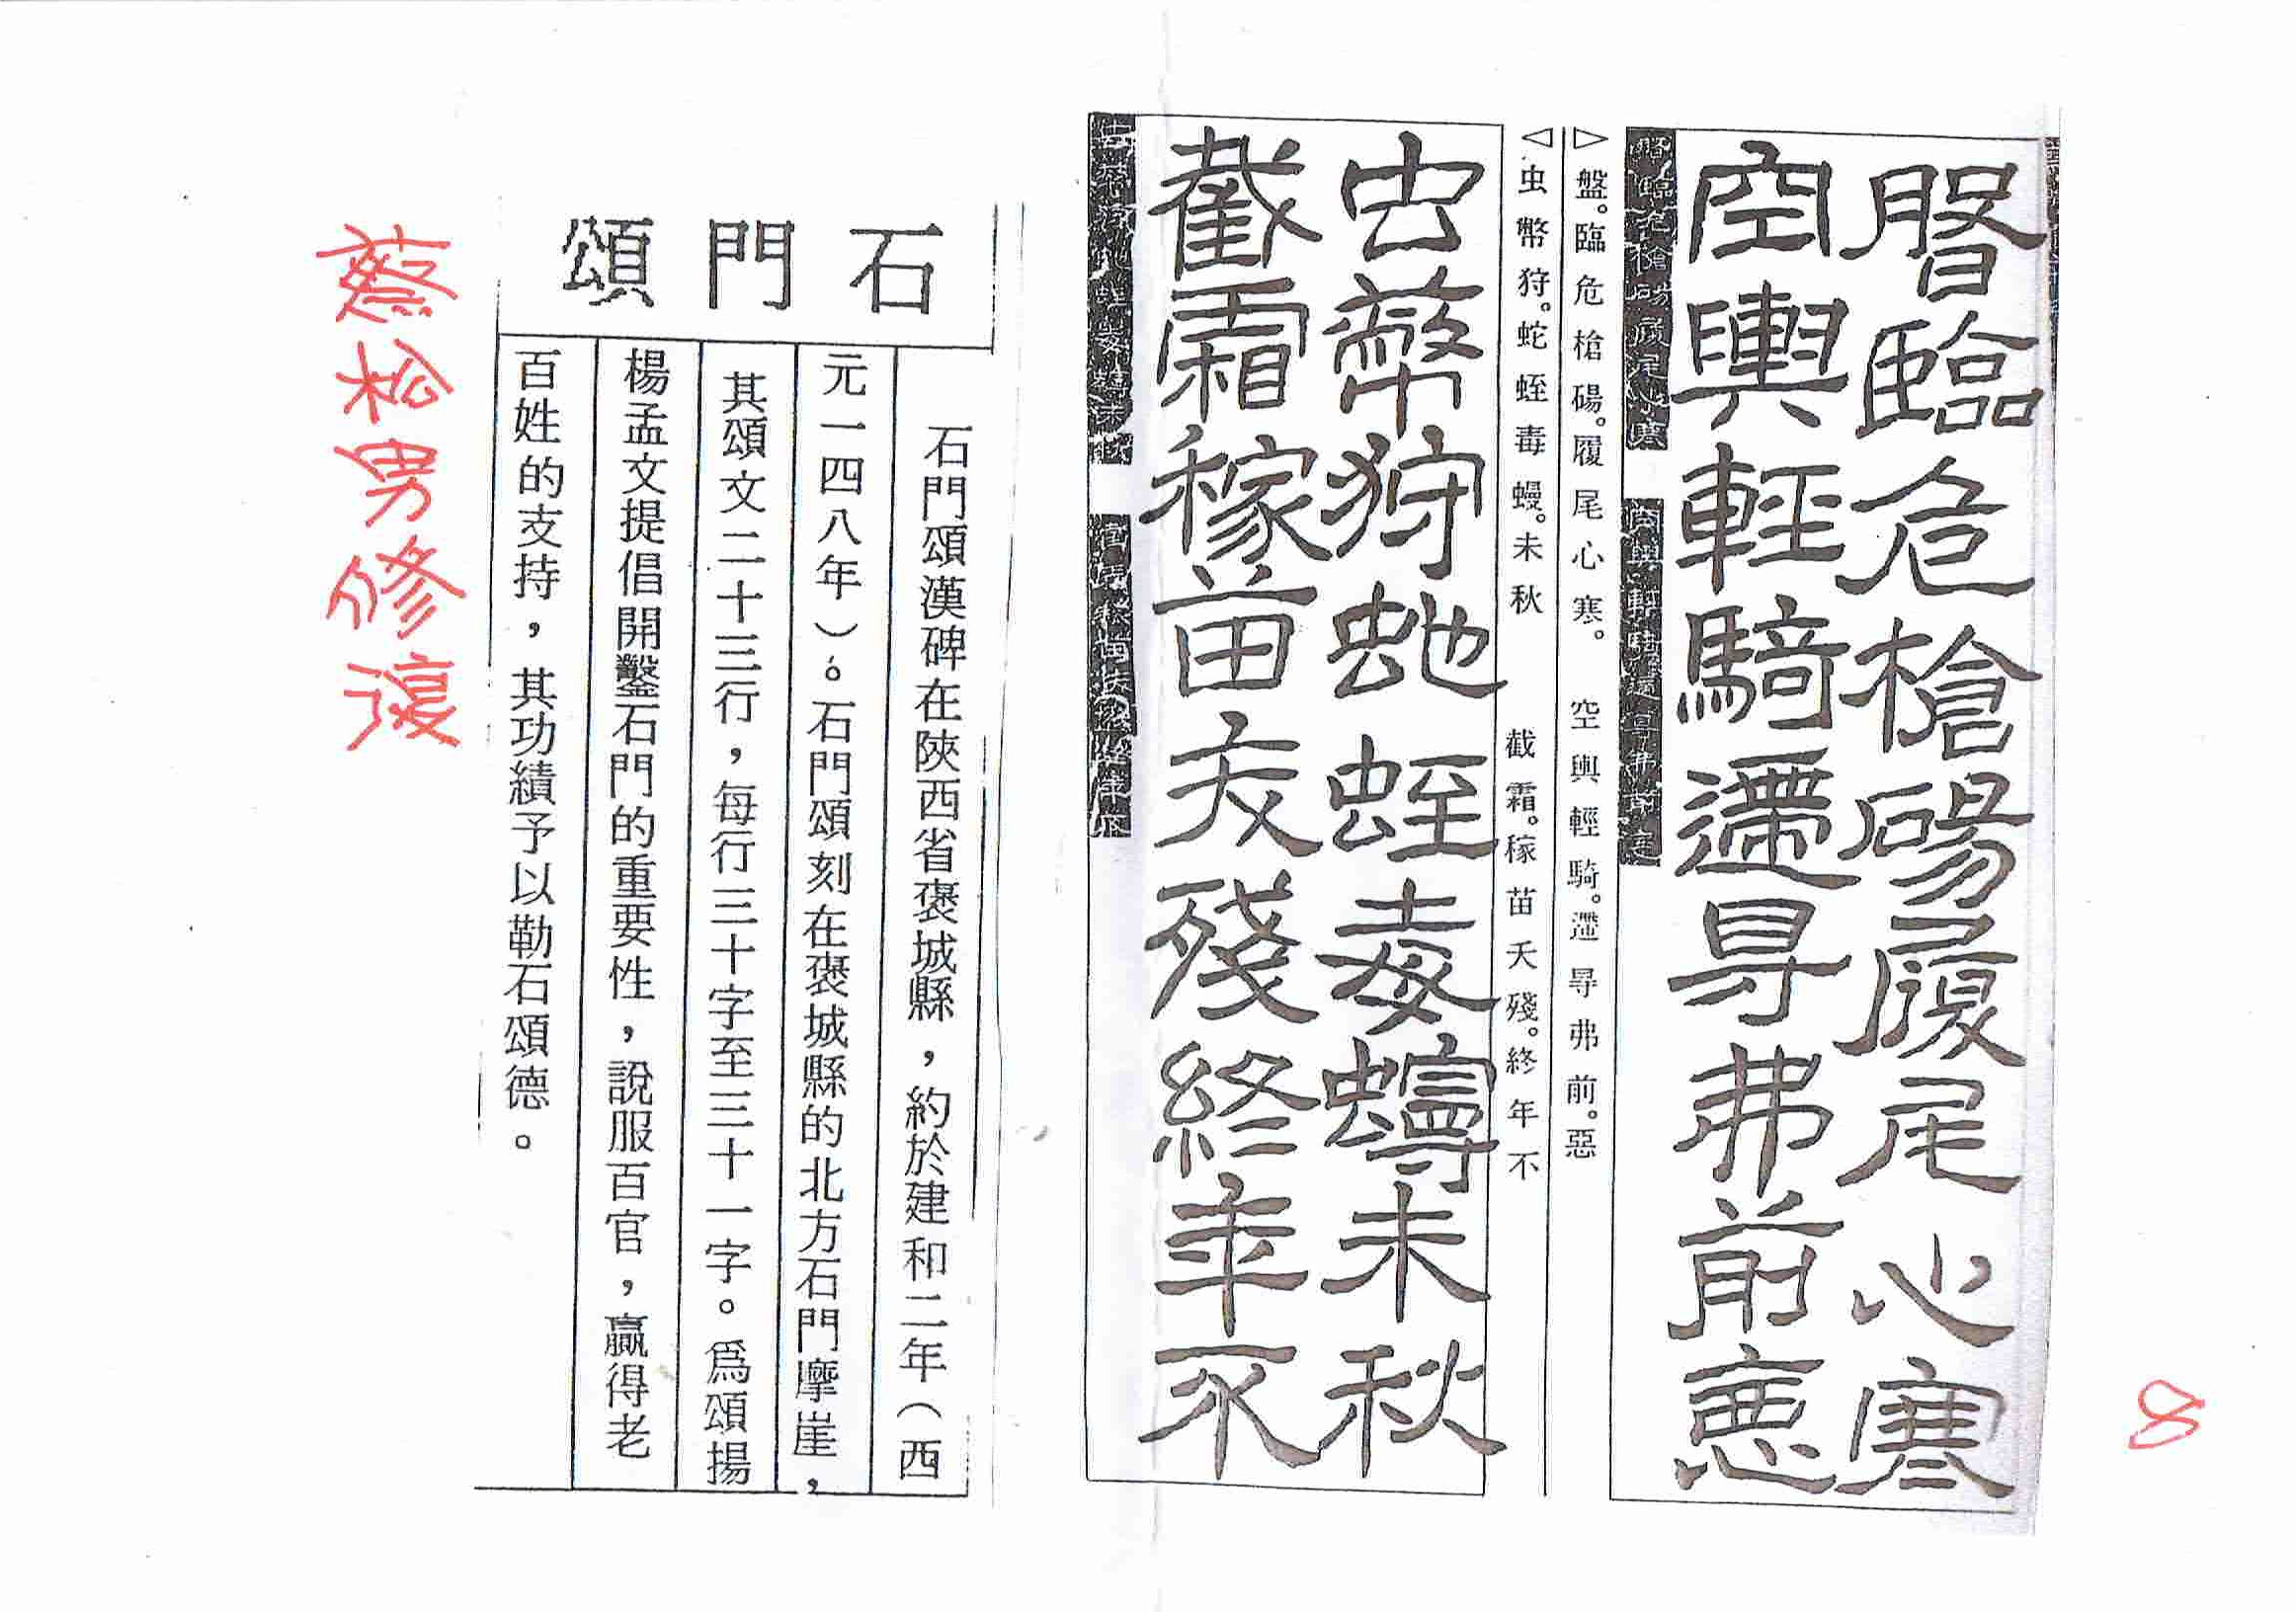 臨危槍碭履尾心寒
空輿輕騎遰㝵弗前惡
▷盤。臨危槍碭。履尾心寒。 空輿輕騎。遰尋弗前。惡
◁虫幣狩。蛇蛭毒蟃。未秋 截霜。稼苗夭殘。終年不
虫弊狩蛇蛭毒蟃未秋
截霜稼苗夭殘終年不
石門頌
石門頌漢碑在陝西省褒城縣，約於建和二年（西
元一四八年）。石門頌刻在褒城縣的北方石門摩崖，
其頌文二十三行，每行三十字至三十一字。爲頌揚
楊孟文提倡開鑿石門的重要性，說服百官，贏得老
百姓的支持，其功績予以勒石頌德。
蔡松男修復
8